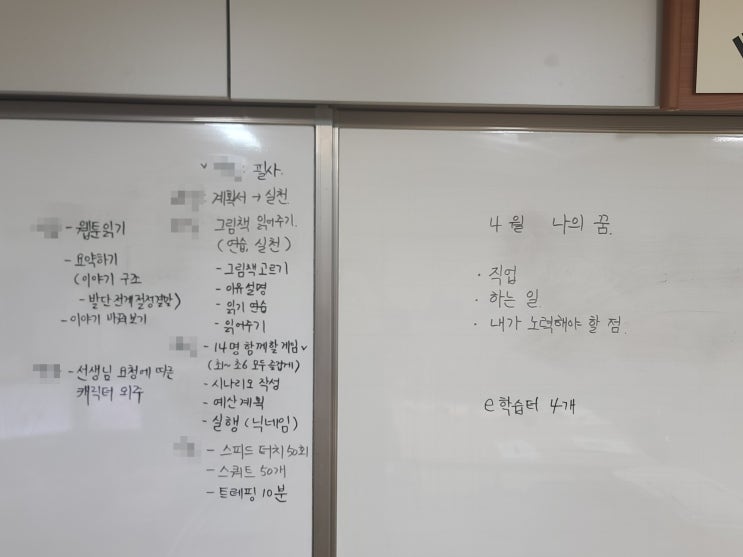 - 웹툰읽기
- 요약하기
(이야기 구조
- 발단 전개 절정 결말)
- 이야기 바꿔보기
- 선생님 요청에 따른
캐릭터 외주
✓ : 필사.
: 계획서 → 실천
그림책 읽어주기.
(연습, 실천)
- 그림책고르기
- 이유설명
- 읽기 연습
- 읽어주기
- 14명 함께할 게임 ✓
초6 모두 즐겁게)
- 시나리오 작성
- 예산 계획
- 실행 (닉네임)
- 스피드 터치 50회
- 스쿼트 50개
- 10분
4월 나의 꿈.
· 직업
· 하는 일.
· 내가 노력해야 할 점.
e학습터 4개